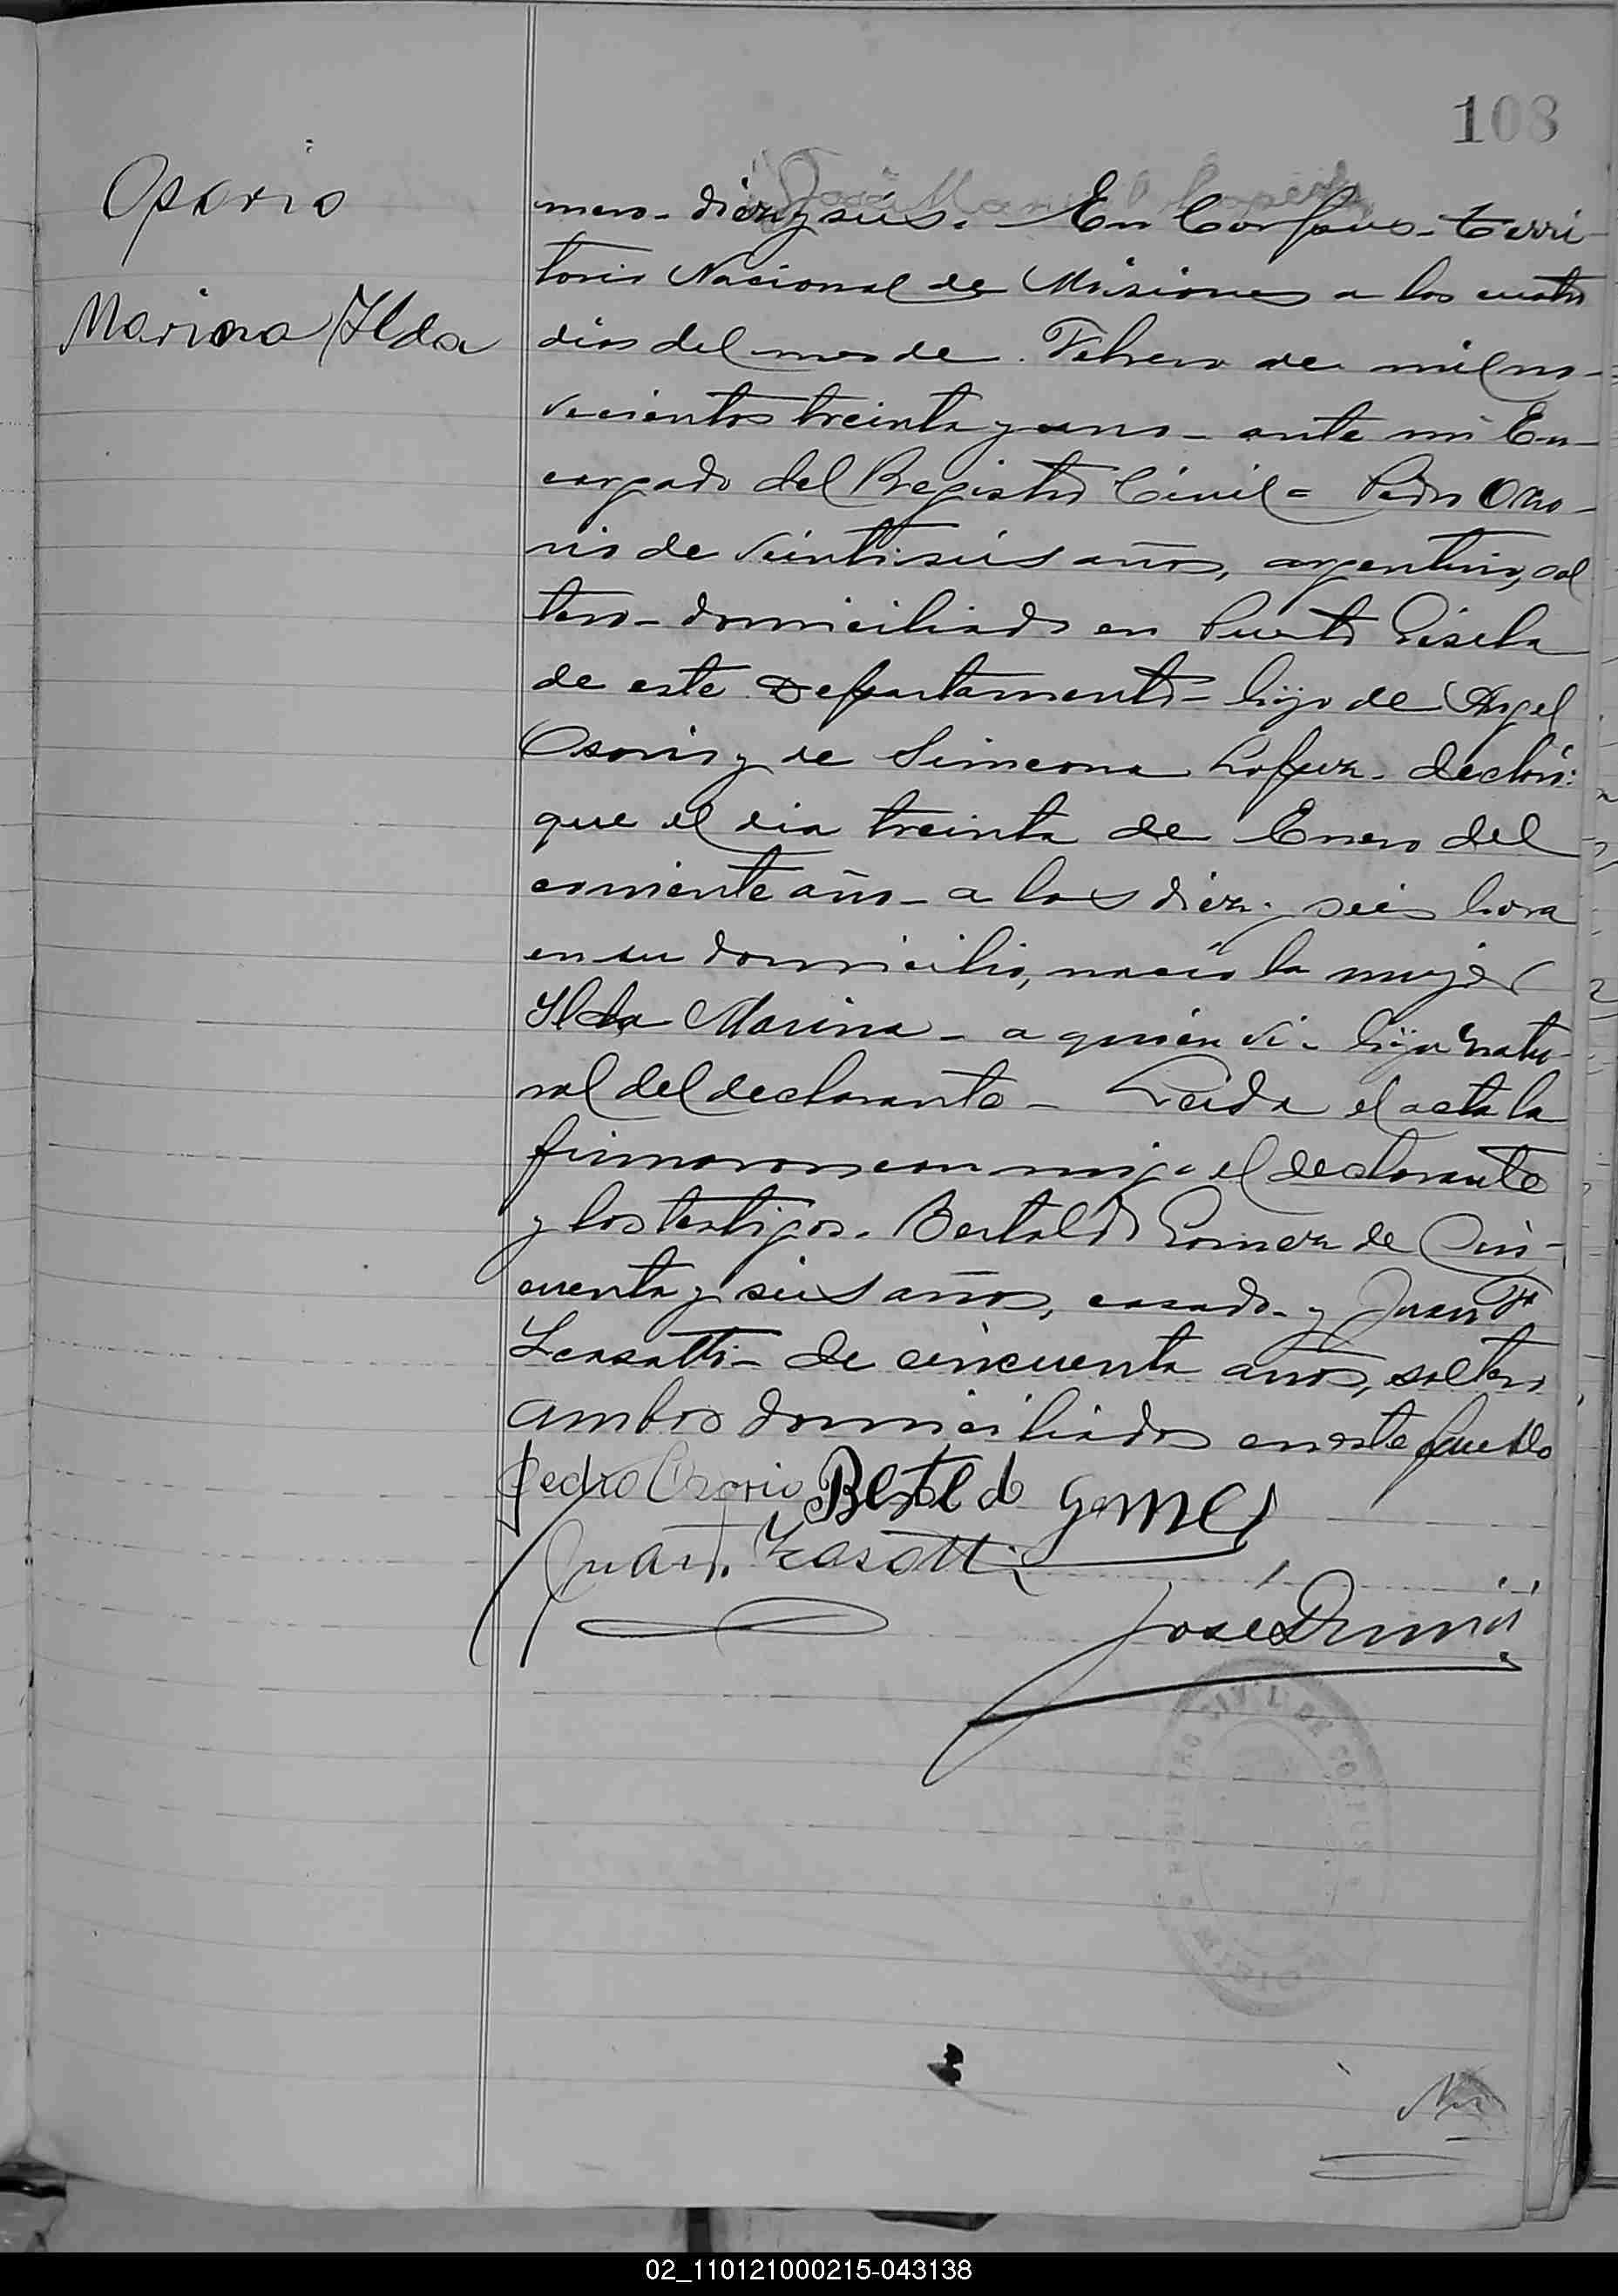 108
Osorio
Marina Ilda
mero - diez y seis. En Corpus - Terri-
torio Nacional de Misiones a los cuatro
dias del mes de Febrero de mil no-
vecientos treinta y uno - ante mi En-
cargado del Registro Civil = Pedro Oso-
rio de veintiseis años, argentino, sol
tero - domiciliado en Puerto Gisela
de este Departamento - hijo de Angel
Osorio y de Simeona Lopez - declaró:
que el dia treinta de Enero del
corriente año - a las diez y seis hora
en su domicilio, nació la mujer
Ilda Marina - a quien vi - hija natu-
ral del declarante - Leida el acta la
firmaron con migo el declarante
y los testigos. Bertoldo Gomez de Cin-
cuenta y seis años, casado - y Juan F.
de cincuenta años, soltero
ambos domiciliados en este pueblo
Pedro Osorio Bertoldo Gomes
Juan F.
José
REGISTRO CIVIL DE CORPUS
02_110121000215-043138